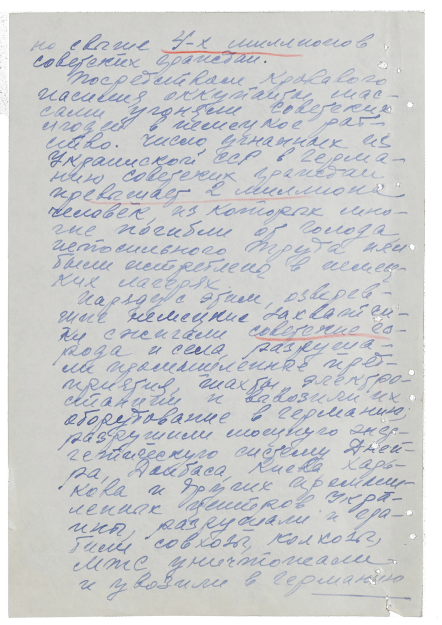 но свыше 4-х миллионов
советских граждан.
Посредством кровавого
насилия оккупанты мас-
сами угоняли советских
людей в немецкое раб-
ство. Число угнанных из
Украинской ССР в Герма-
нию советских граждан
превышает 2 миллиона
человек, из которых мно-
гие погибли от голода
непосильного труда или
были истреблены в немец-
ких лагерях.
Наряду с этим, озверев-
шие немецкие захватчи-
ки сжигали советские го-
рода и села, разруша-
ли промышленные пред-
приятия, шахты, электро-
станции и вывозили их
оборудование в Германию
разрушили мощную энер-
гетическую систему Днеп-
ра, Донбаса, Киева Харь-
кова и других промыш-
ленных центров Укра-
ины, разрушали и гра-
били совхозы, колхозы,
МТС, уничтожали
и увозили в Германию